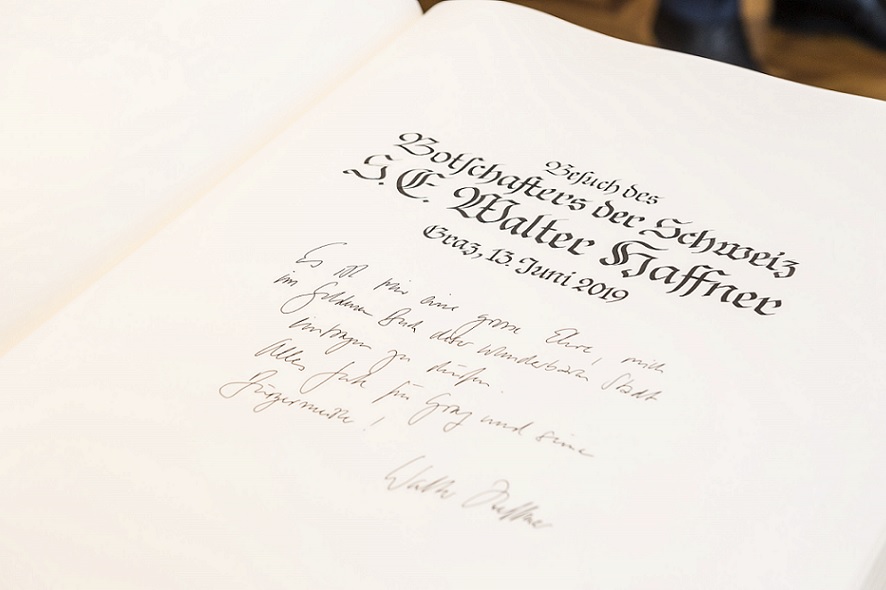 Besuch des
Botschafters der Schweiz
S.E. Walter Haffner
Graz, 13. Juni 2019
Es ist mir eine grosse Ehre, mich
im Goldenen Buch dieser wunderbaren Stadt
eintragen zu dürfen.
Alles Gute für Graz und seine
Bürgermeister!
Walter Haffner